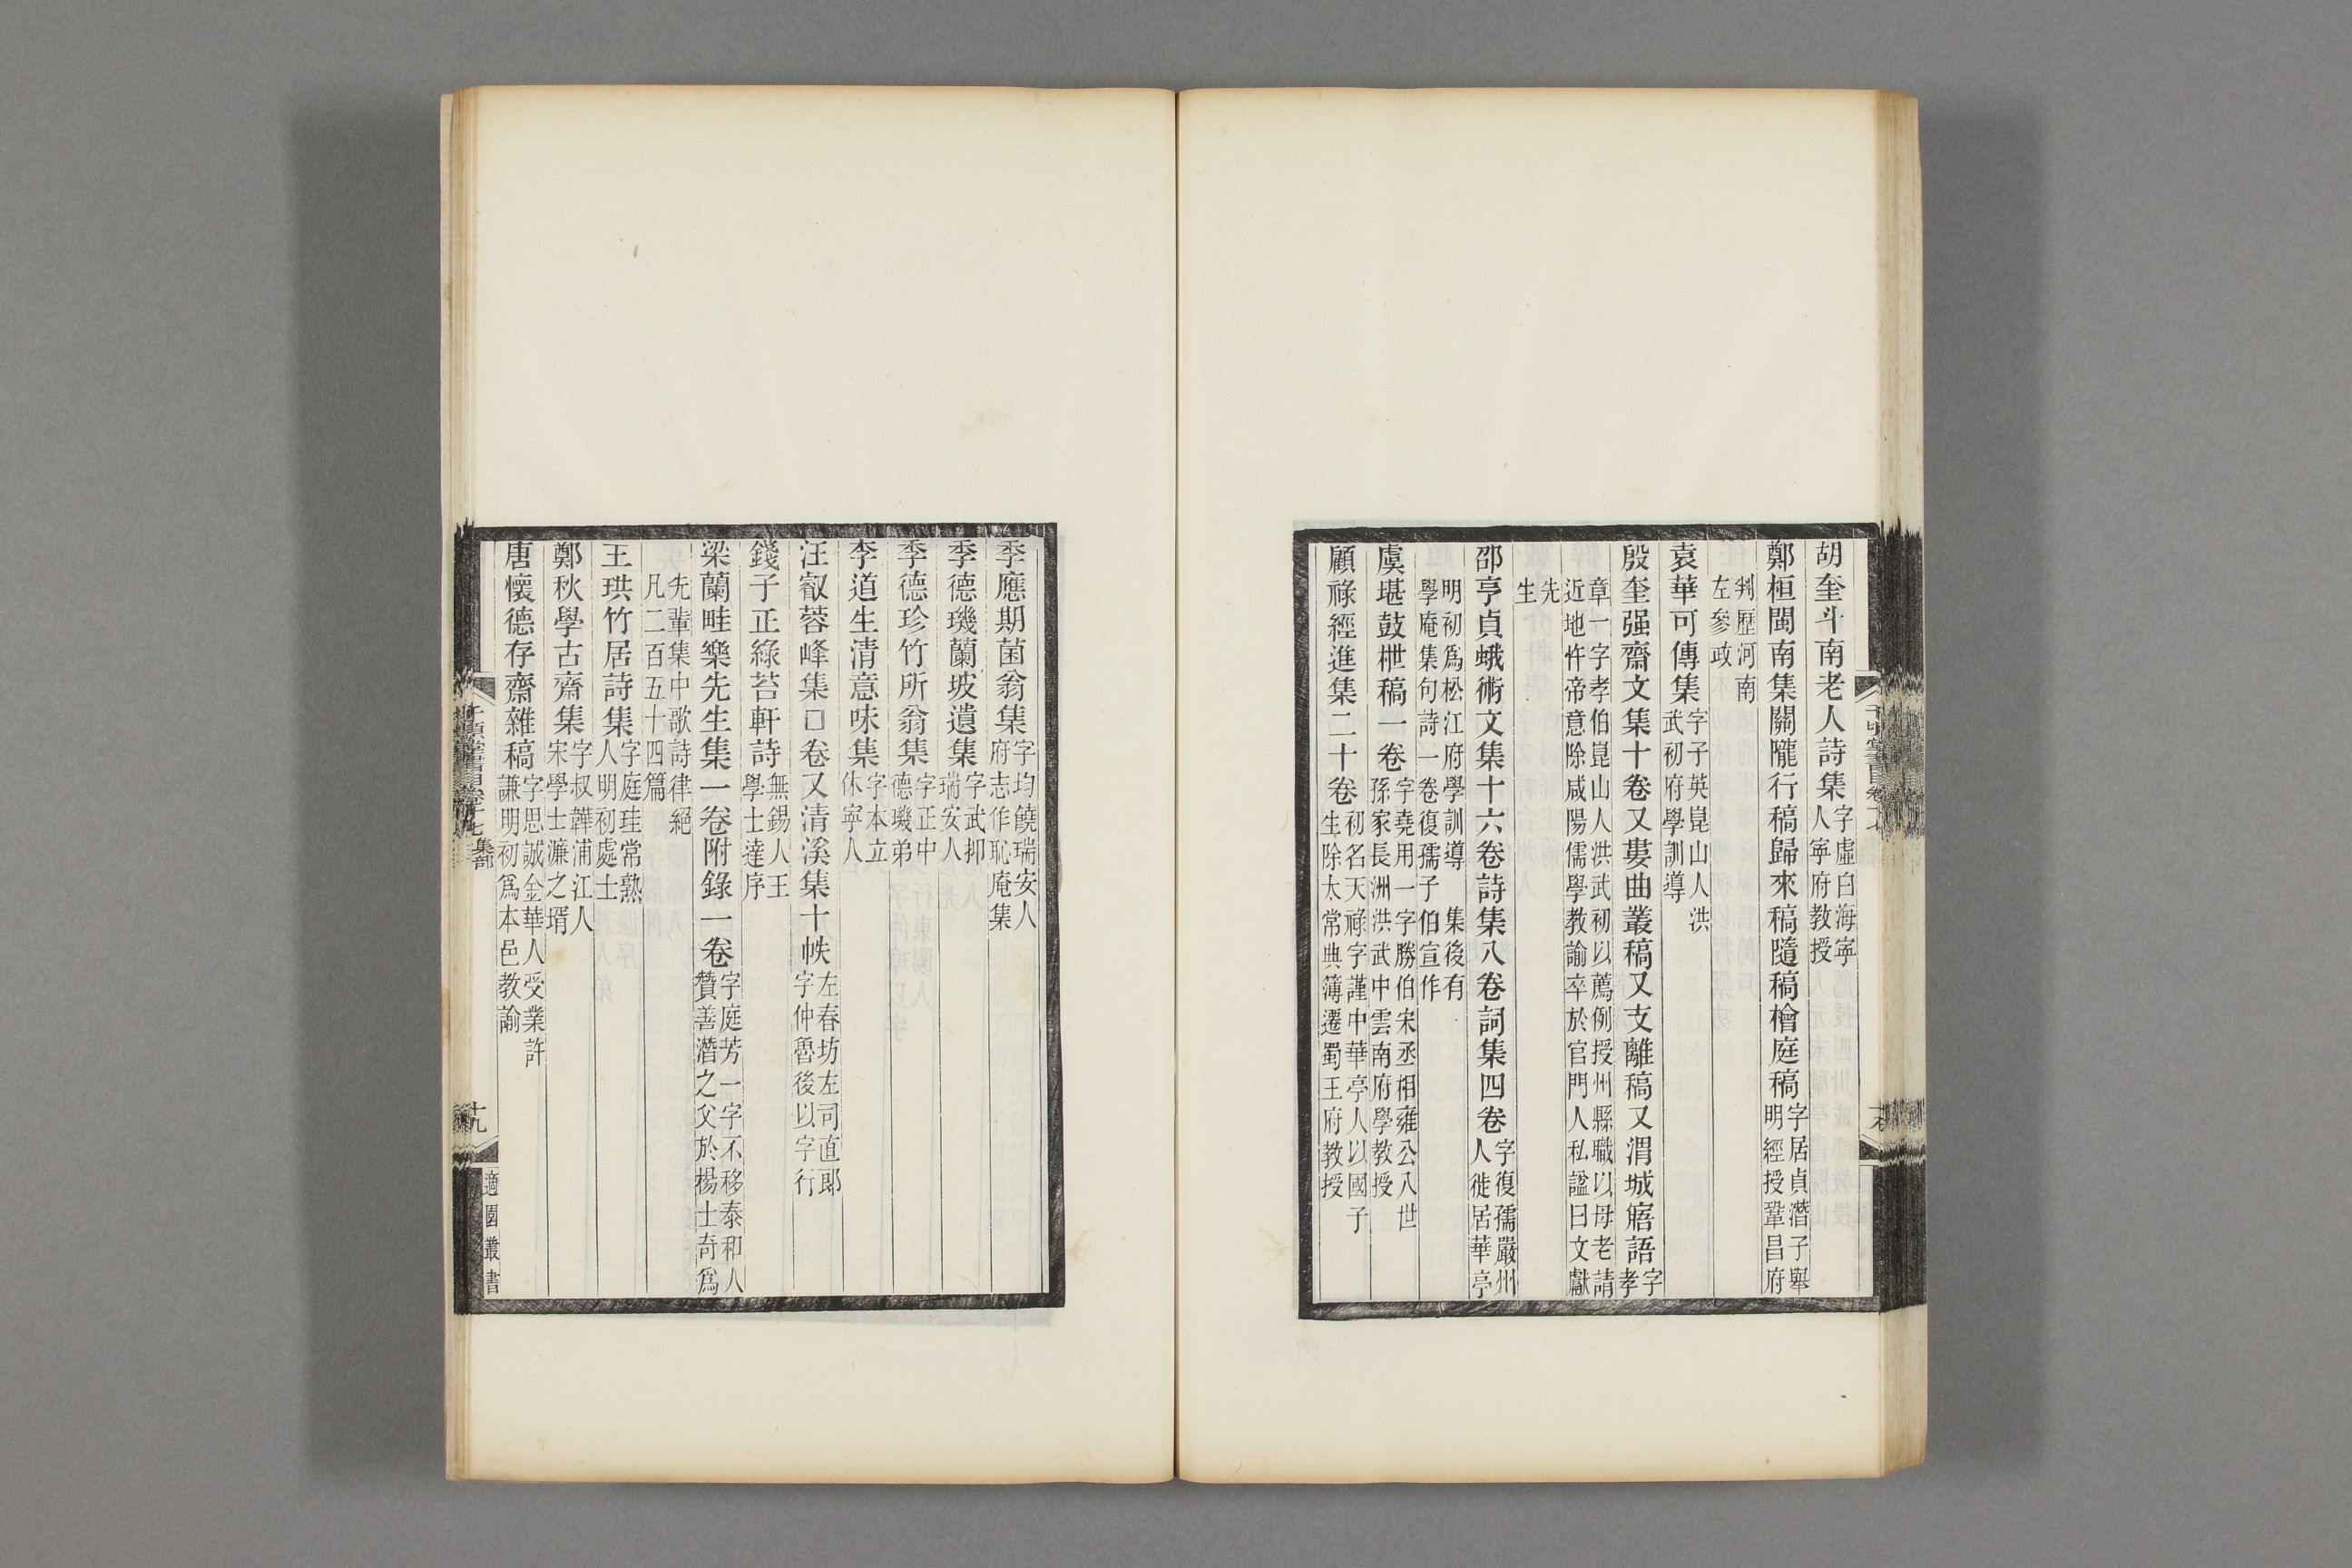 胡奎斗南老人詩集字虛白海寧人寧府教授
鄭桓閩南集關隴行稿歸來稿隨稿檜庭稿字居貞潛子舉明經授鞏昌府
判歷河南左參政
袁華可傳集字子英崑山人洪武初府學訓導
殷奎强齋文集十卷又婁曲叢稿又支離稿又渭城寤語字孝
章一字孝伯崑山人洪武初以薦例授州縣職以母老請近地忤帝意除咸陽儒學教諭卒於官門人私謚曰文獻
先生
邵亨貞蛾術文集十六卷詩集八卷詞集四卷字復孺嚴州人徙居華亭
明初爲松江府學訓導 集後有學庵集句詩一卷復孺子伯宣作
虞堪鼓枻稿一卷字堯用一字勝伯宋丞相雍公八世孫家長洲洪武中雲南府學教授
顧祿經進集二十卷初名天祿字謹中華亭人以國子生除太常典簿遷蜀王府教授
季應期菌翁集字均饒瑞安人府志作恥庵集
季德璣蘭坡遺集字武抑瑞安人
季德珍竹所翁集字正中德璣弟
李道生清意味集字本立休寧人
汪叡蓉峰集□卷又清溪集十帙左春坊左司直郞字仲魯後以字行
錢子正綠苔軒詩無錫人王學士達序
梁蘭畦樂先生集一卷附錄一卷字庭芳一字不移泰和人贊善潛之父於楊士奇爲
先輩集中歌詩律絕凡二百五十四篇
王珙竹居詩集字庭珪常熟人明初處士
鄭秋學古齋集字叔韡浦江人宋學士濂之壻
唐懷德存齋雜稿字思誠金華人受業許謙明初爲本邑教諭
千頃堂書目卷十七 集部
十九
適園叢書